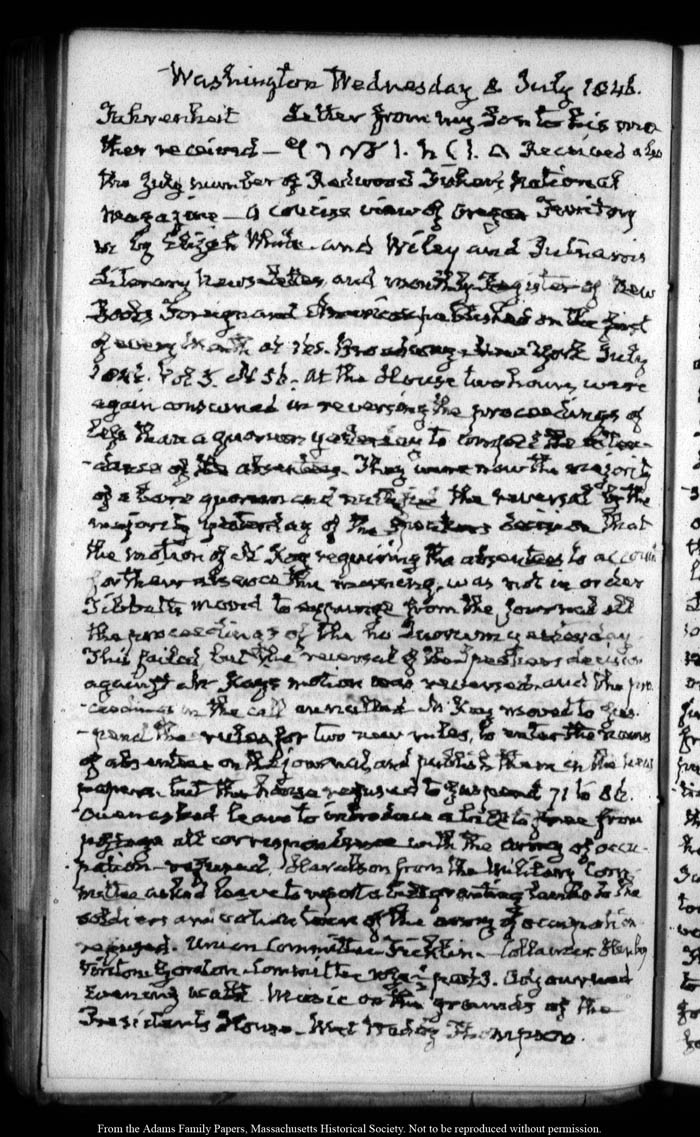 Washington Wednesday 8 July 1846.
Fahrenheit Letter from my Son to his mo
ther received — Received also
the July number of Redwood Fisher's National
Magazine — A concise view of Oregon Territory
by Elijah White and Wiley and Putnam's
Literary News Letter, and monthly Register of New
Books Foreign and American published on the first
of every Month at 161. Broadway New York July
1846. Vol 5. N 56. At the House two hours were
again consumed in reversing the proceedings of
less than a quorum yesterday to compel the atten-
-dance of the absentees. They were now the majority
of a bare quorum and the reversal by the
majority yesterday of the Speakers decision that
the motion of Mr Kog requiring the absentees to account
for their absence this morning, was not in order
Tibbatts moved to expunge from the Journal all
the proceedings of the no Quorum yesterday.
This failed, but the reversal of the Speakers decision
against Mr Kogs motion was reversed and the pro
-ceedings in the call annulled. Mr Kog moved to sus-
-pend the rules for two new rules, to enter the names
of absentees on the journal, and publish them in the news
papers. but the house refused to suspend 71 to 86.
Owen asked leave to introduce a bill to free from
postage all correspondence with the army of occu-
-pation — refused. Haralson from the Military Com
mittee asked leave to report a bill granting lands to the
soldiers of the army of occupation
refused. Union Committee Ficklin — Collamer
Gordon Committee Adjourned
Evening walk Music on the grounds of the
Presidents House — Thompson.
From the Adams Family Papers, Massachusetts Historical Society. Not to be reproduced without permission.